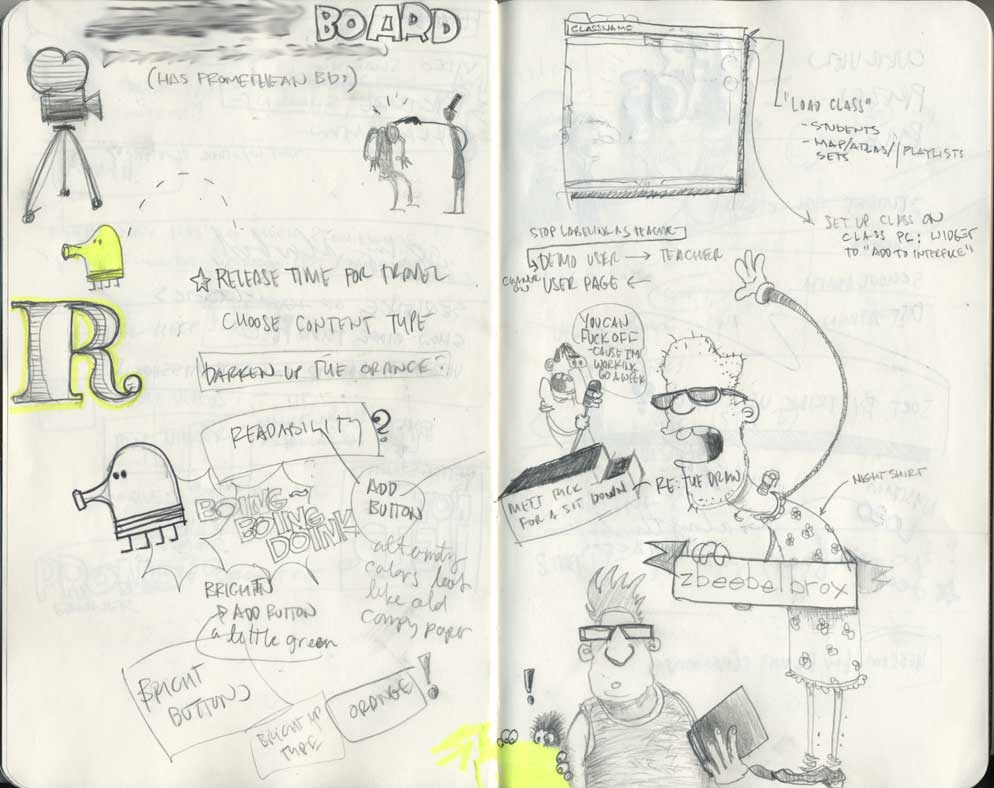 BOARD
(HAS PROMETHEAN BDS)
☆ RELEASE TIME FOR TRAVEL
CHOOSE CONTENT TYPE
R
DARKEN UP THE ORANGE?
READABILITY?
ADD
BUTTON
BOIING~
BOIING
DOIINK!
alternity
colors look
like old
compy paper
BRIGHTEN
ADD BUTTON
a little green
BRIGHT
BUTTONS
ORANGE!
BRIGHT UP
TYPE
CLASSNAME
"LOAD CLASS"
- STUDENTS
- MAP/ATLAS/PLAYLISTS
SETS
SET UP CLASS ON
CLASS PC: WIDGET
TO "ADD TO INTERFACE"
STOP LABELING AS TEACHER
DEMO USER → TEACHER
USER PAGE ←
YOU CAN
FUCK OFF
-CAUSE I'M
WORKING
60 A WEEK
MEET RICK
FOR A SIT DOWN
RE: THE DRAW
NIGHT SHIRT
zbeebelbrox
!